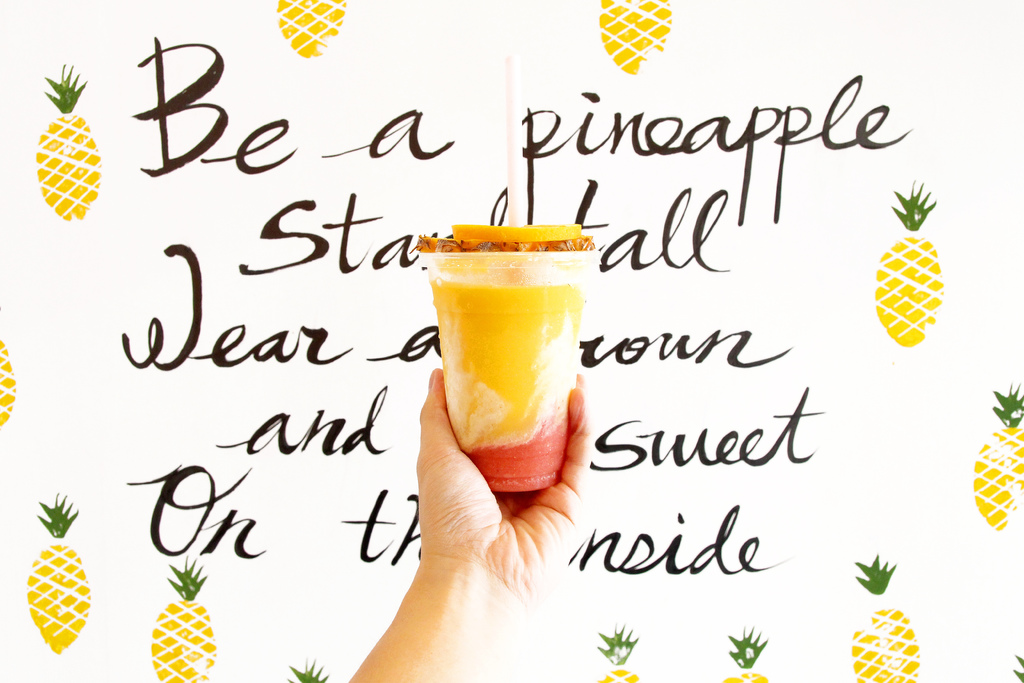 Be a pineapple
Stand tall
Wear a crown
and sweet
On the inside